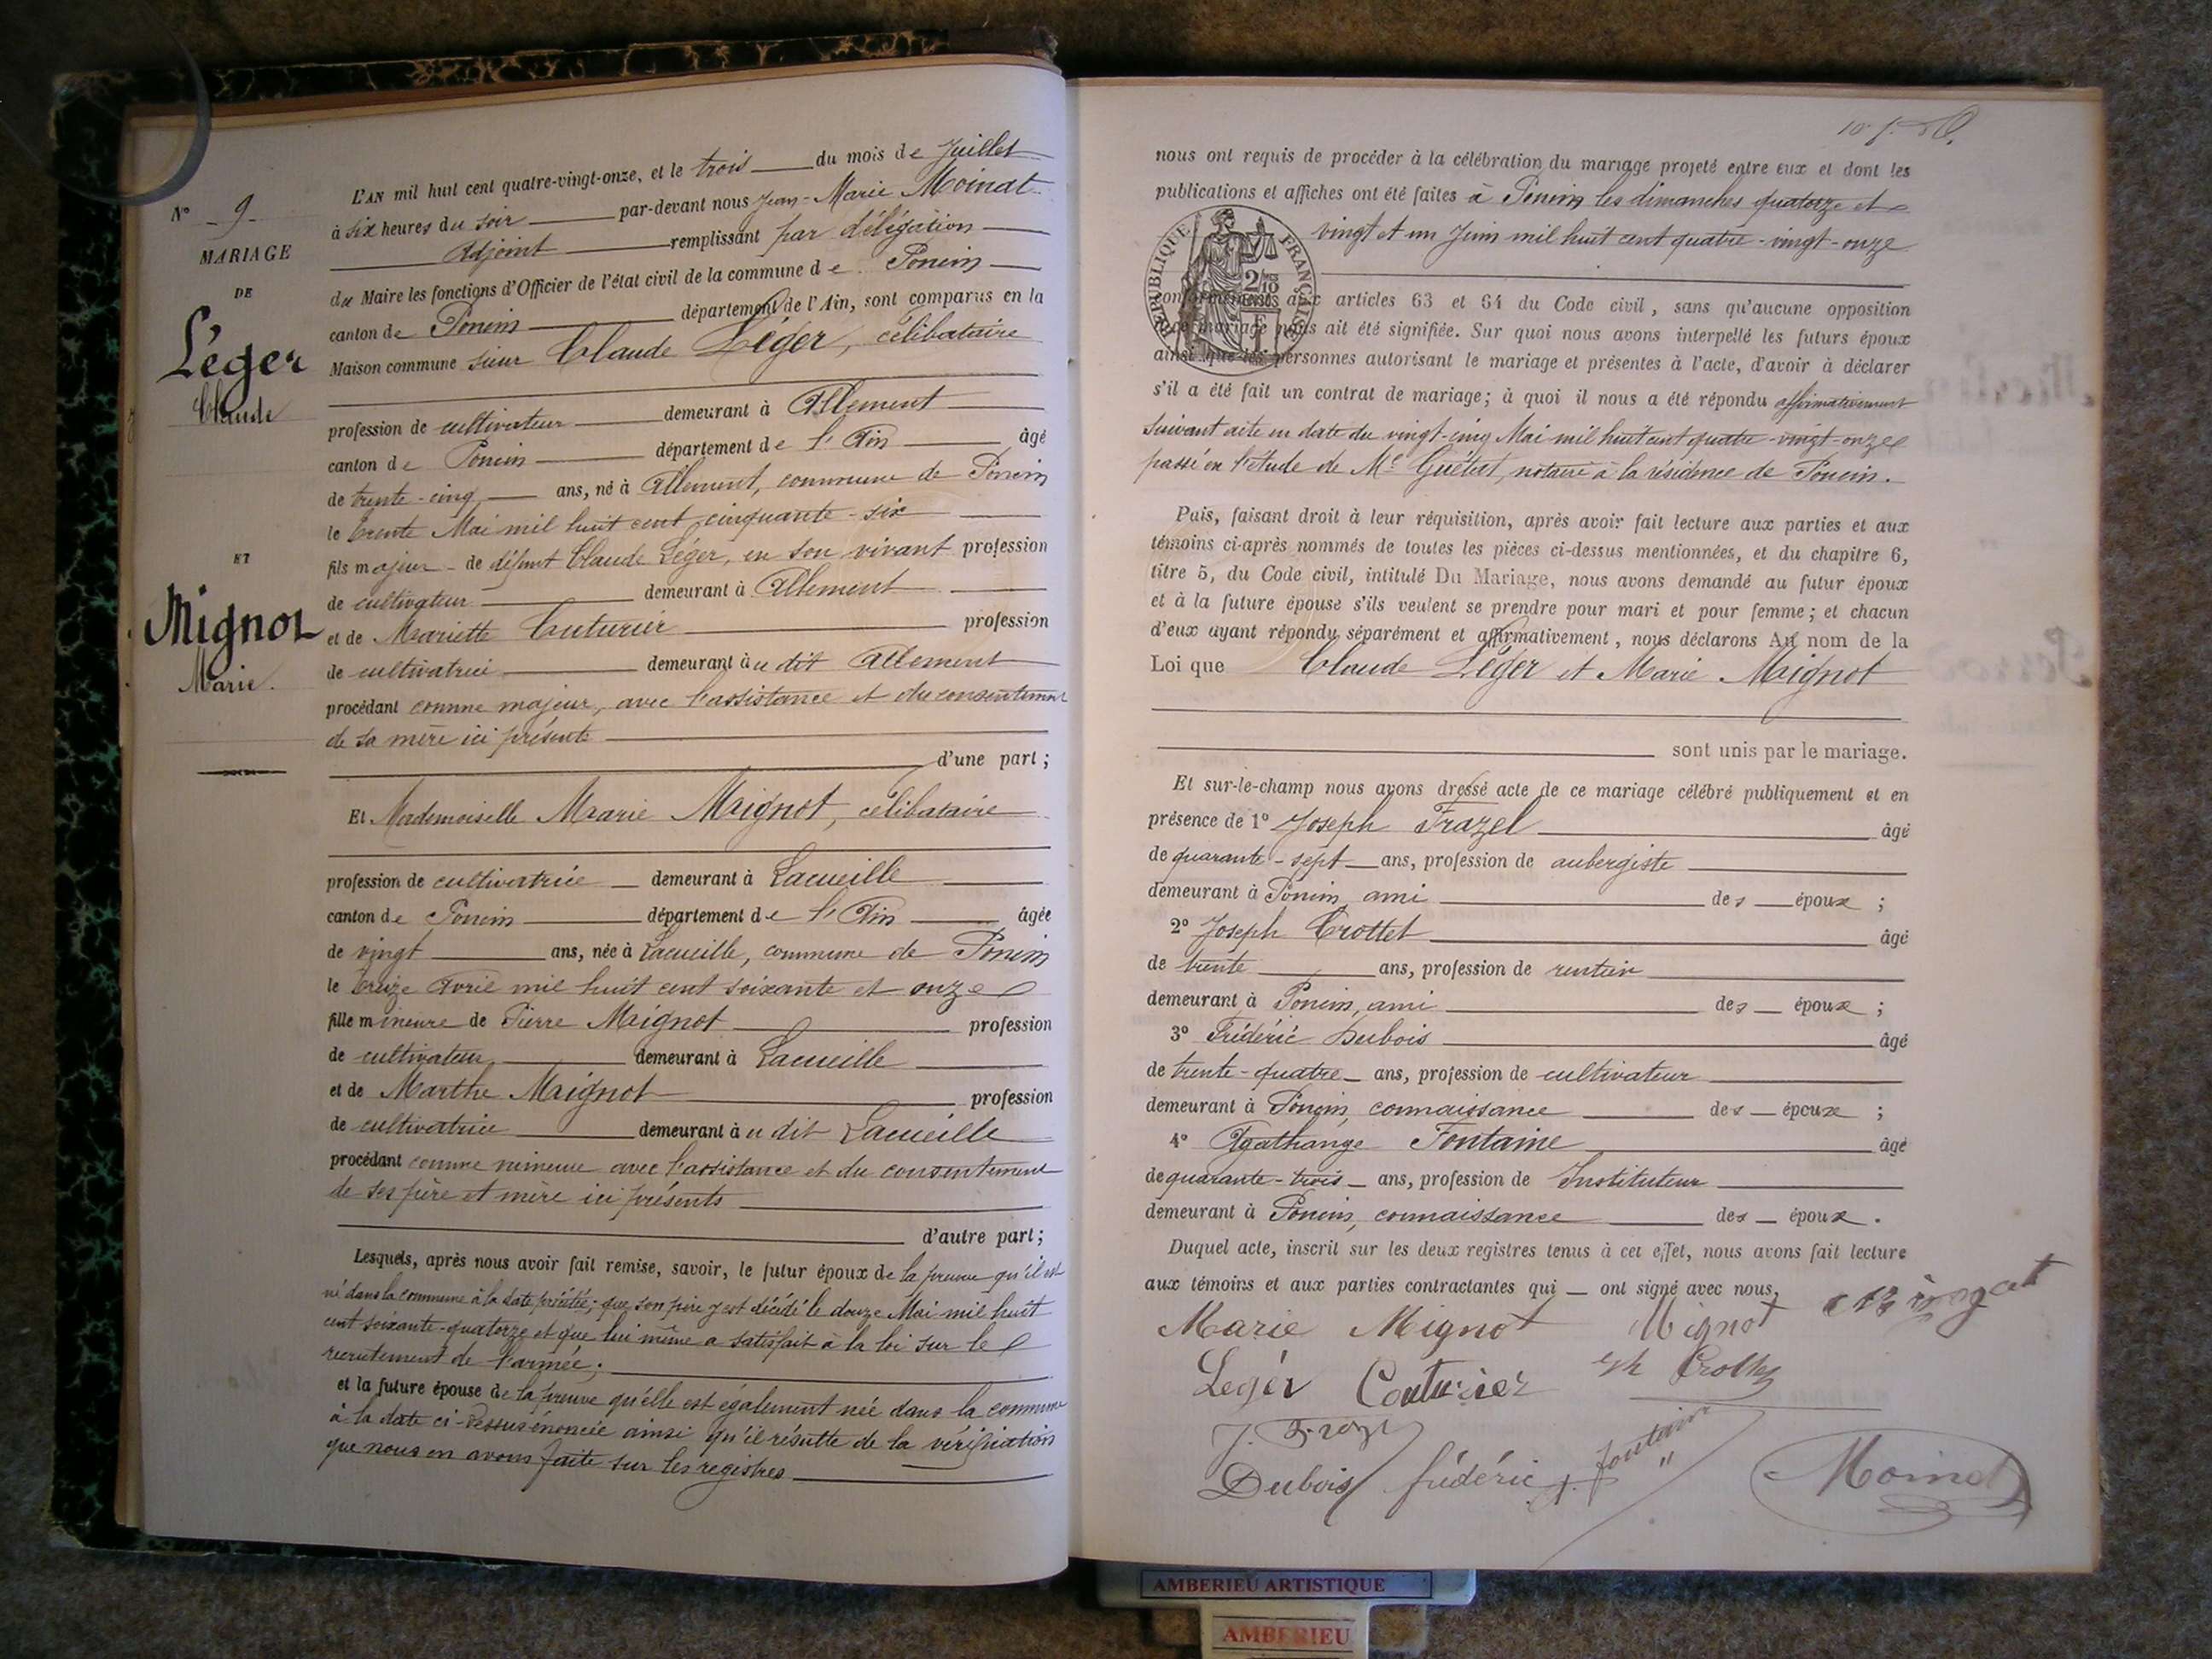 N° 9
MARIAGE
DE
Léger
Claude
ET
Mignot
Marie.
L'AN mil huit cent quatre-vingt-onze, et le trois du mois de Juillet
à six heures du soir par-devant nous Jean-Marie Moinat
Adjoint remplissant par délégation
du Maire les fonctions d'Officier de l'état civil de la commune de Poncin
canton de Poncin département de l'Ain, sont comparus en la
Maison commune sieur Claude Léger, célibataire
profession de cultivateur demeurant à Allement
canton de Poncin département de l'Ain âgé
de trente-cinq ans, né à Allement, commune de Poncin
le trente Mai mil huit cent cinquante-six
fils majeur de défunt Claude Léger, en son vivant profession
de cultivateur demeurant à Allement
et de Mariette Couturier profession
de cultivatrice demeurant au dit Allement
procédant comme majeur, avec l'assistance et du consentement
de sa mère ici présente
d'une part ;
Et Mademoiselle Marie Mignot, célibataire
profession de cultivatrice demeurant à Lacueille
canton de Poncin département de l'Ain âgée
de vingt ans, née à Lacueille, commune de Poncin
le treize Avril mil huit cent soixante et onze
fille mineure de Pierre Mignot profession
de cultivateur demeurant à Lacueille
et de Marthe Mignot profession
de cultivatrice demeurant au dit Lacueille
procédant comme mineure avec l'assistance et du consentement
de ses père et mère ici présents
d'autre part ;
Lesquels, après nous avoir fait remise, savoir, le futur époux de la preuve qu'il est
né dans la commune à la date précitée; que son père y est décédé le douze Mai mil huit
cent soixante-quatorze et que lui même a satisfait à la loi sur le
recrutement de l'armée;
et la future épouse de la preuve qu'elle est également née dans la commune
à la date ci-dessus énoncée ainsi qu'il résulte de la vérification
que nous en avons faite sur les registres
nous ont requis de procéder à la célébration du mariage projeté entre eux et dont les
publications et affiches ont été faites à Poncin les dimanches quatorze et
vingt et un Juin mil huit cent quatre-vingt-onze
RÉPUBLIQUE FRANÇAISE
conformément aux articles 63 et 64 du Code civil, sans qu'aucune opposition
à ce mariage nous ait été signifiée. Sur quoi nous avons interpellé les futurs époux
ainsi que les personnes autorisant le mariage et présentes à l'acte, d'avoir à déclarer
s'il a été fait un contrat de mariage; à quoi il nous a été répondu affirmativement
suivant acte en date du vingt-cinq Mai mil huit cent quatre-vingt-onze
passé en l'étude de Me Guétat, notaire à la résidence de Poncin.
Puis, faisant droit à leur réquisition, après avoir fait lecture aux parties et aux
témoins ci-après nommés de toutes les pièces ci-dessus mentionnées, et du chapitre 6,
titre 5, du Code civil, intitulé Du Mariage, nous avons demandé au futur époux
et à la future épouse s'ils veulent se prendre pour mari et pour femme; et chacun
d'eux ayant répondu séparément et affirmativement, nous déclarons Au nom de la
Loi que Claude Léger et Marie Mignot
sont unis par le mariage.
Et sur-le-champ nous avons dressé acte de ce mariage célébré publiquement et en
présence de 1° Joseph Frazel âgé
de quarante-sept ans, profession de aubergiste
demeurant à Poncin, ami des époux ;
2° Joseph Crottet âgé
de trente ans, profession de rentier
demeurant à Poncin, ami des époux ;
3° Frédéric Dubois âgé
de trente-quatre ans, profession de cultivateur
demeurant à Poncin, connaissance des époux ;
4° Agathange Fontaine âgé
de quarante-trois ans, profession de Instituteur
demeurant à Poncin, connaissance des époux .
Duquel acte, inscrit sur les deux registres tenus à cet effet, nous avons fait lecture
aux témoins et aux parties contractantes qui ont signé avec nous.
Marie Mignot Mignot
Leger Couturier
Dubois frédéric A. fontaine Moinat
AMBERIEU ARTISTIQUE
AMBERIEU